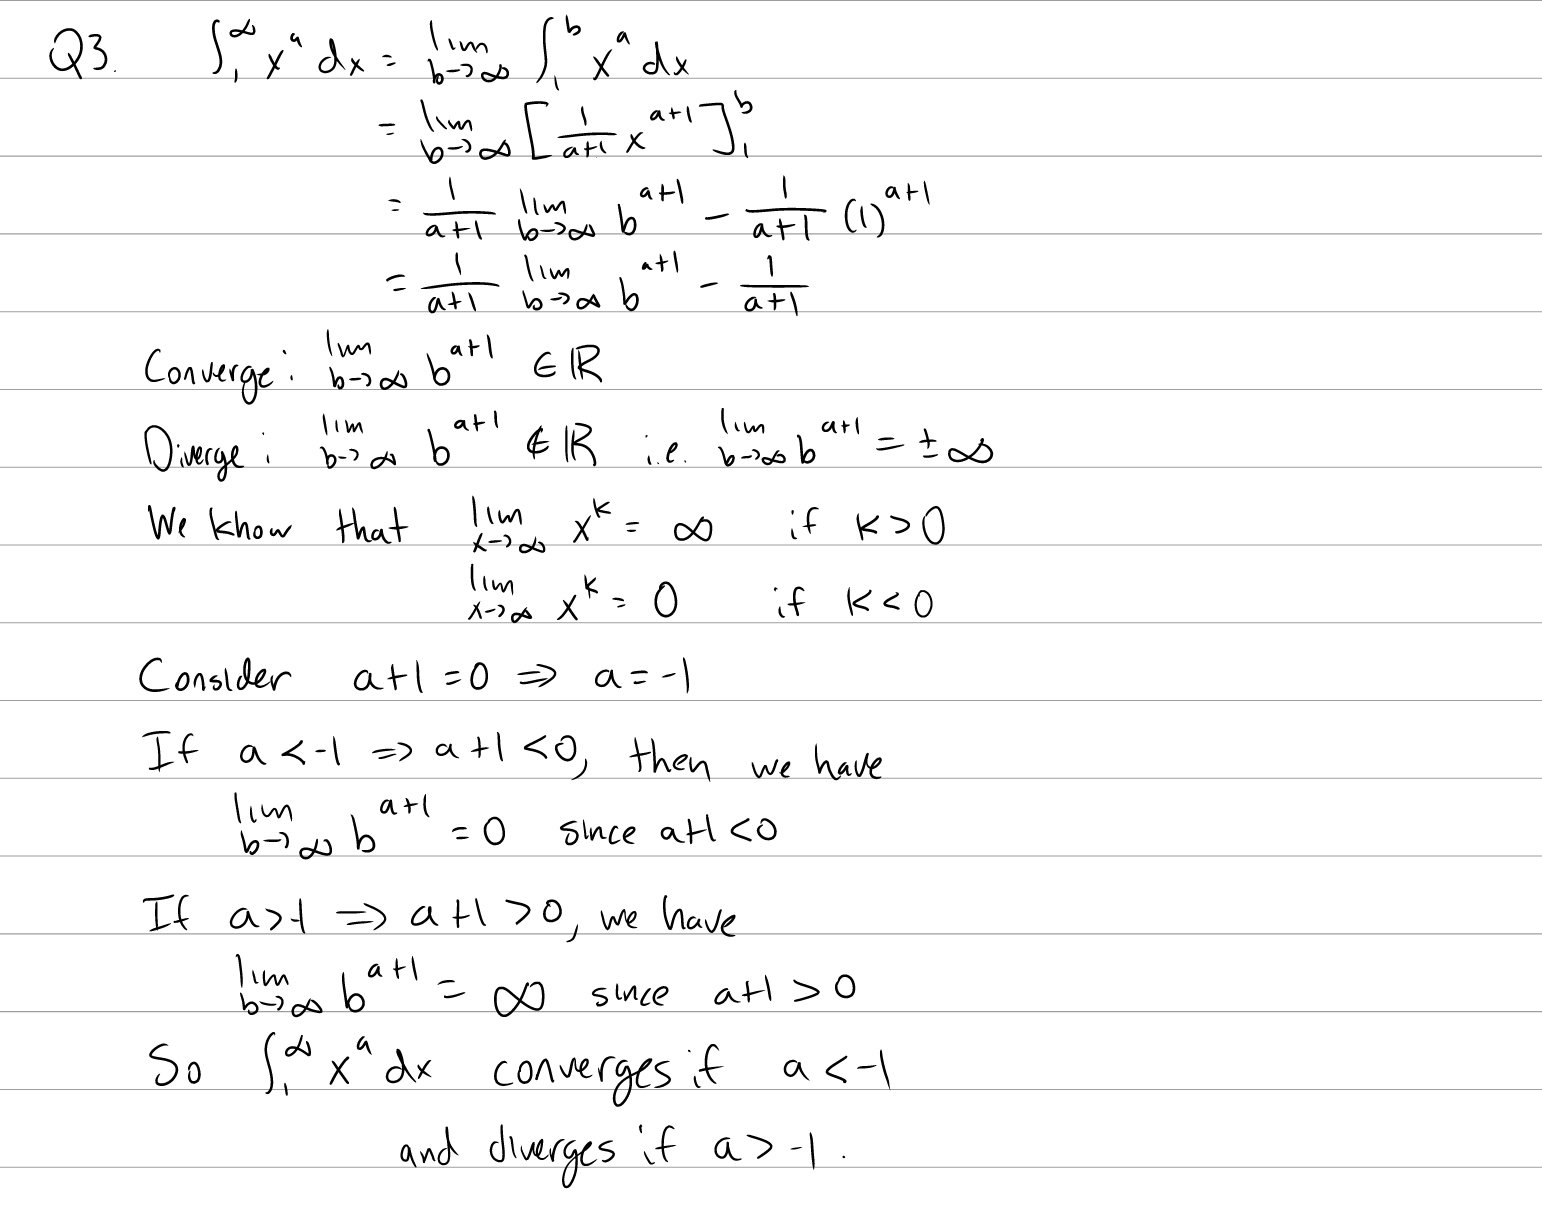 Q3. ∫₁^∞ x^a dx = lim_{b→∞} ∫₁^b x^a dx
= lim_{b→∞} [1/(a+1) x^{a+1}]₁^b
= 1/(a+1) lim_{b→∞} b^{a+1} - 1/(a+1) (1)^{a+1}
= 1/(a+1) lim_{b→∞} b^{a+1} - 1/(a+1)
Converge: lim_{b→∞} b^{a+1} ∈ ℝ
Diverge: lim_{b→∞} b^{a+1} ∉ ℝ i.e. lim_{b→∞} b^{a+1} = ±∞
We know that lim_{x→∞} x^k = ∞ if k > 0
lim_{x→∞} x^k = 0 if k < 0
Consider a+1 = 0 ⇒ a = -1
If a < -1 ⇒ a+1 < 0, then we have
lim_{b→∞} b^{a+1} = 0 since a+1 < 0
If a > -1 ⇒ a+1 > 0, we have
lim_{b→∞} b^{a+1} = ∞ since a+1 > 0
So ∫₁^∞ x^a dx converges if a < -1
and diverges if a > -1.